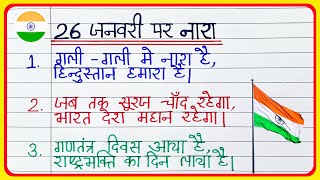 26 जनवरी पर नारा
1. गली - गली मे नारा है,
हिन्दुस्तान हमारा है।
2. जब तक सूरज चाँद रहेगा,
भारत देश महान रहेगा।
3. गणतंत्र दिवस आया है,
राष्ट्रभक्ति का दिन लाया है।